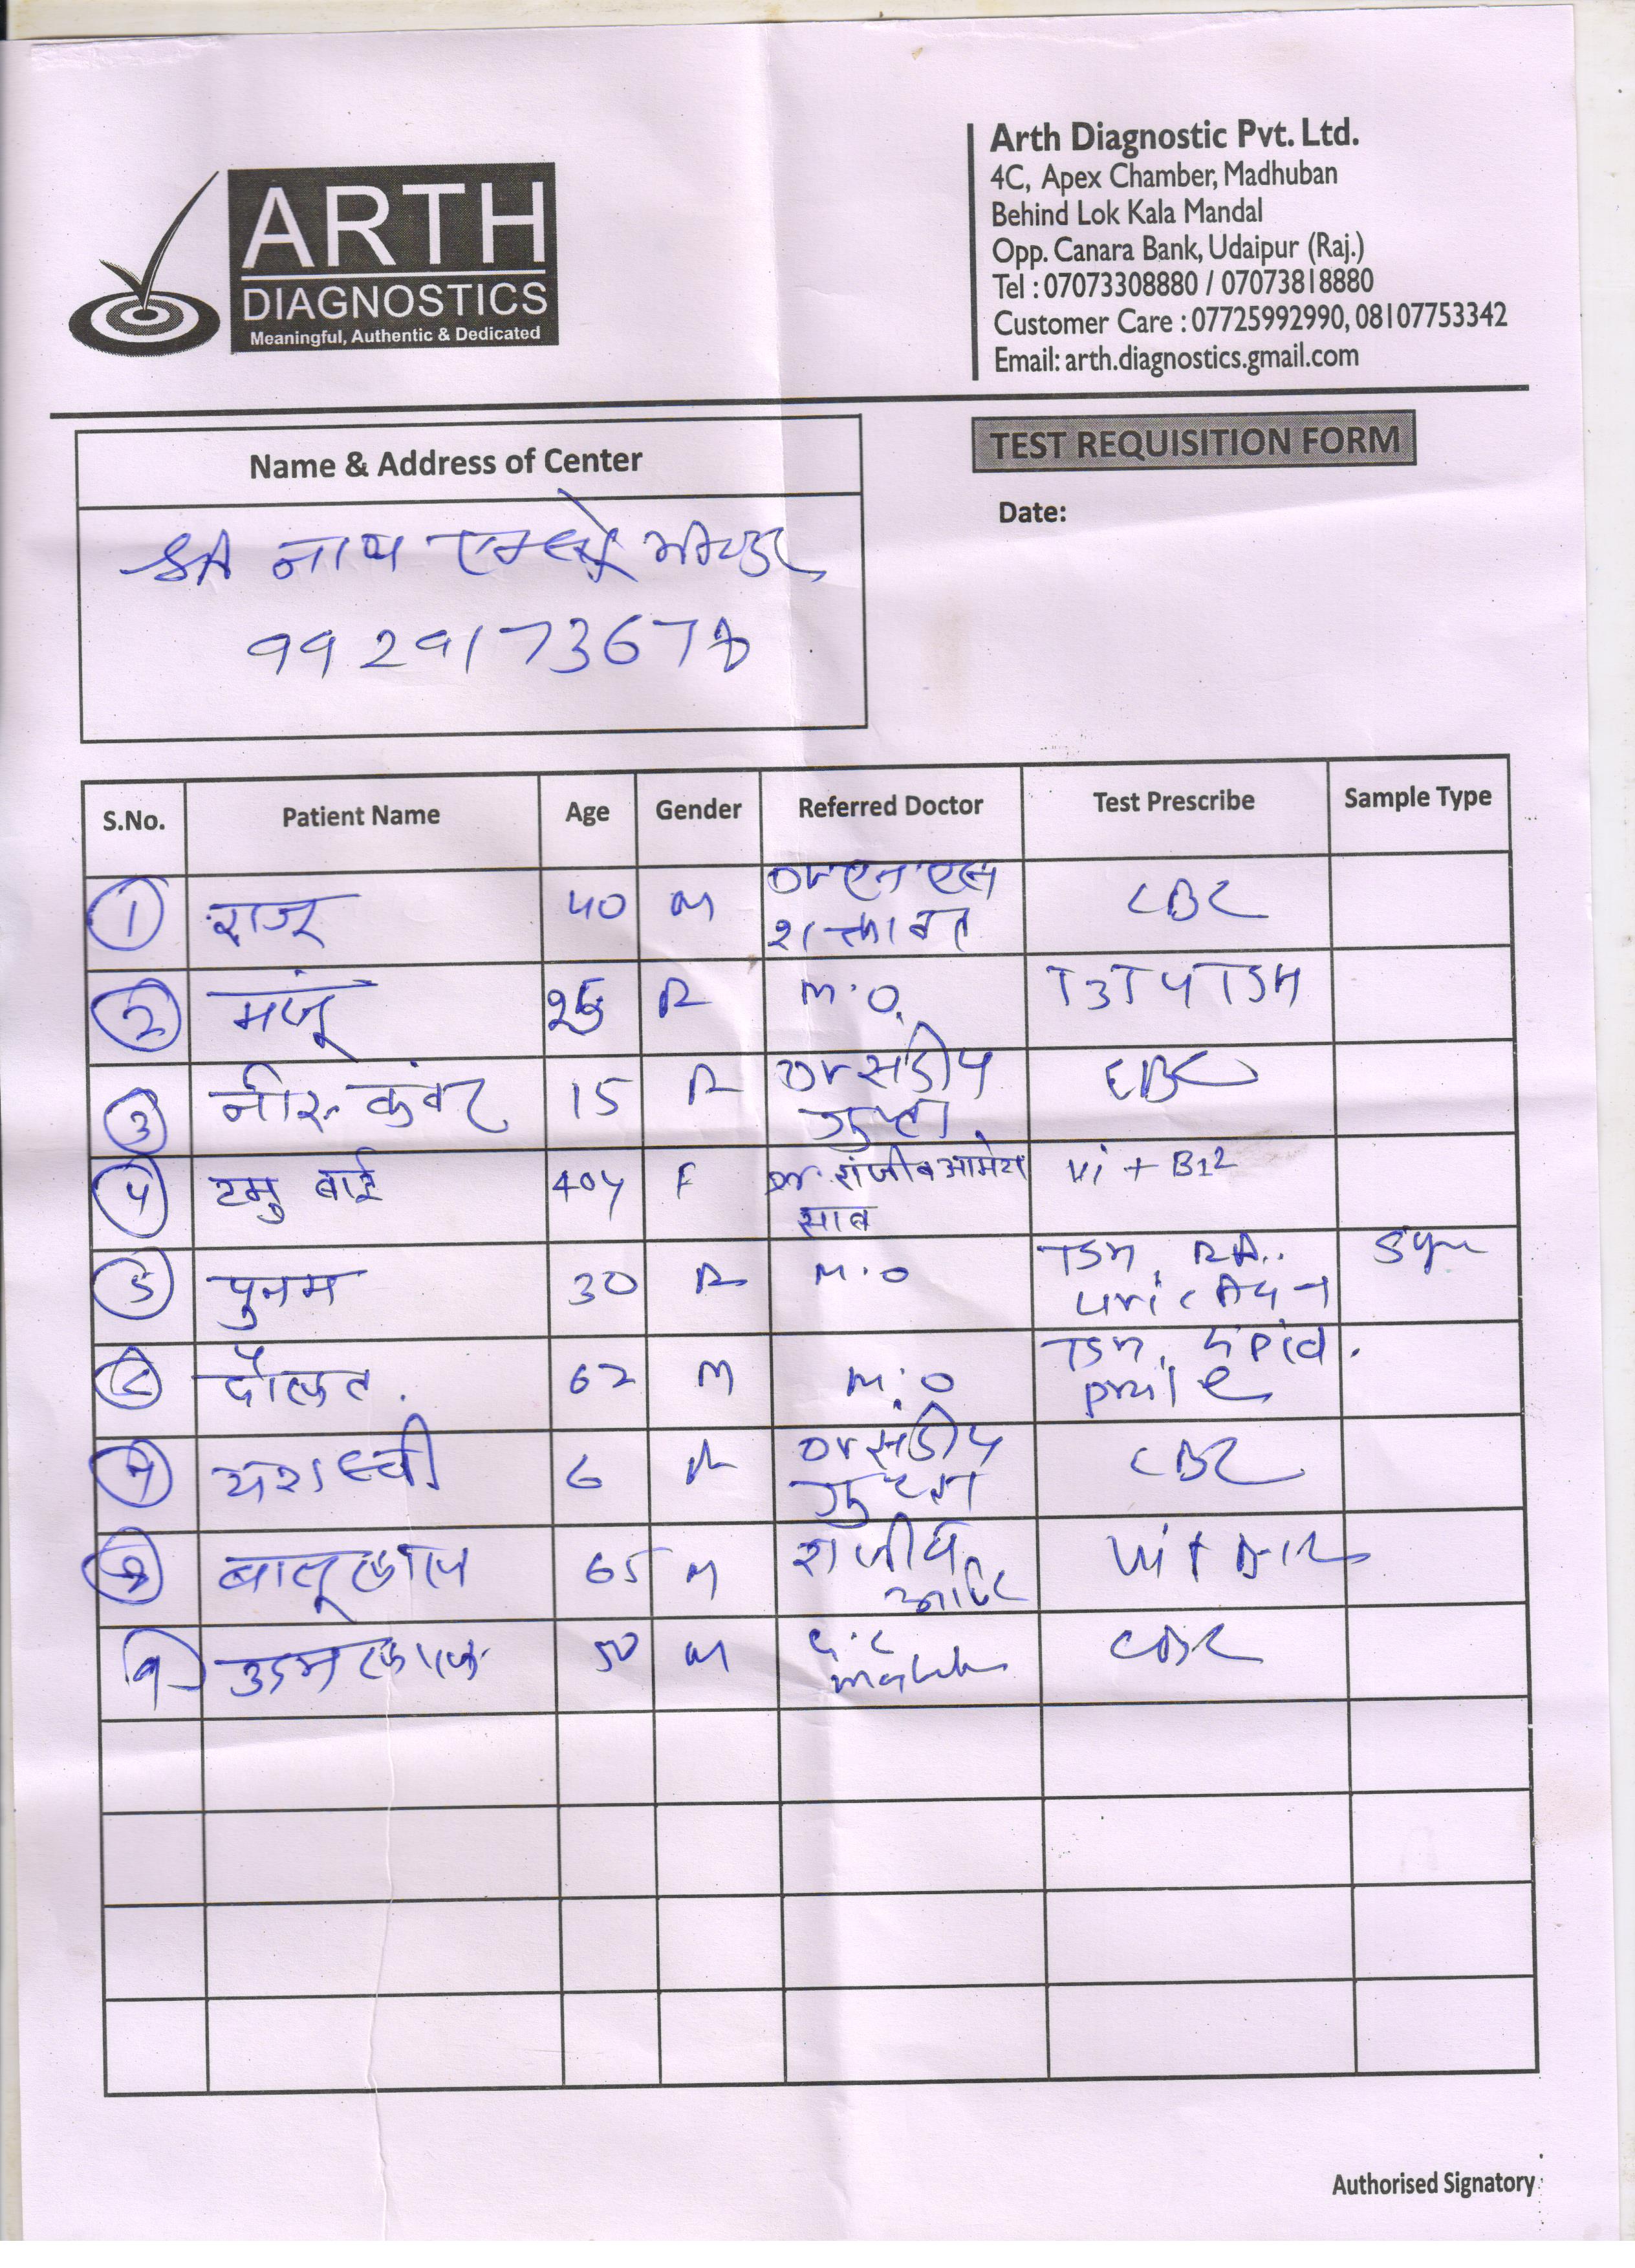 ARTH
DIAGNOSTICS
Meaningful, Authentic & Dedicated
Arth Diagnostic Pvt. Ltd.
4C, Apex Chamber, Madhuban
Behind Lok Kala Mandal
Opp. Canara Bank, Udaipur (Raj.)
Tel : 07073308880 / 07073818880
Customer Care : 07725992990, 08107753342
Email: arth.diagnostics.gmail.com
Name & Address of Center
TEST REQUISITION FORM
Date:
श्री नाथ
S.No. Patient Name Age Gender Referred Doctor Test Prescribe Sample Type
1 राजू 40 M Dr एन एस शक्तावत CBC
2 मंजू M.O. T3T4TSH
3 नीरू कंवर 15 Dr संदीप गुप्ता CBC
4 टमु बाई 40y F Dr. संजीव आमेटा साब Vit B12
5 पुनम 30 M.O TSH, RA..
6 दौलत. 62 M M.O TSH, Lipid.
7 यशस्वी 6 Dr संदीप गुप्ता CBC
8 बालूलाल 65 M Vit B12
9 50 M CBC
Authorised Signatory